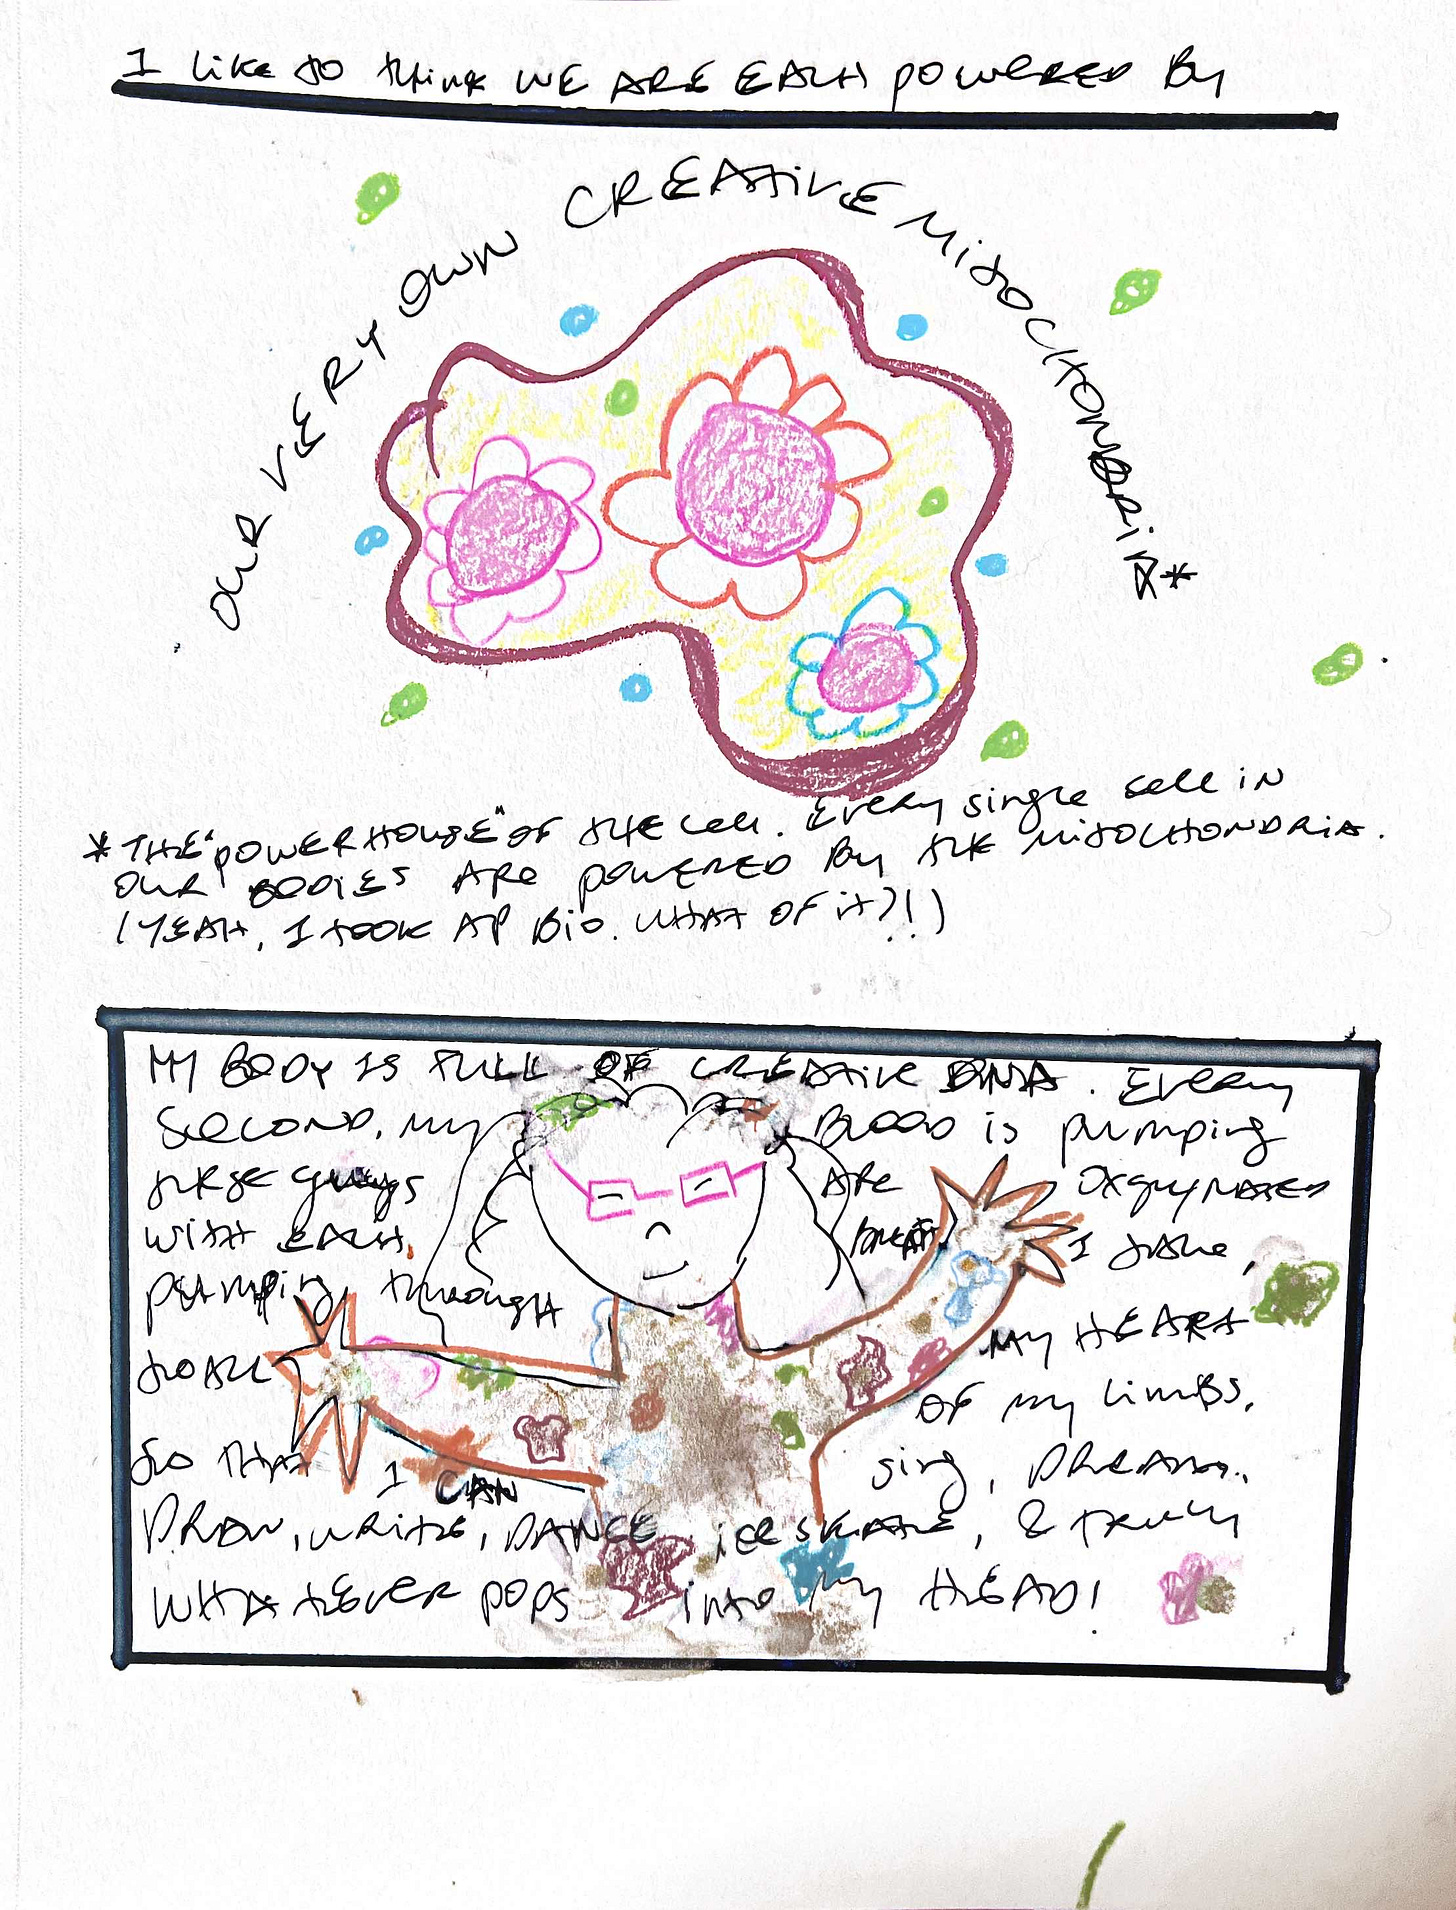 I like to think WE ARE EACH powered By
OUR VERY OWN CREATIVE MITOCHONDRIA*
*THE "POWERHOUSE" OF THE cell. Every single cell in
OUR BODIES ARE POWERED By THE MITOCHONDRIA.
(YEAH, I took AP Bio. WHAT OF it?!)
MY BODY IS FULL OF CREATIVE DNA. Every
Second, my Blood is pumping
are oxygynated
with each breath I take,
pumping through my HEART
to all of my limbs,
so that I CAN sing, DREAM,
DRAW, WRITE, DANCE, ice skate, & truly
WHATEVER pops into my HEAD!